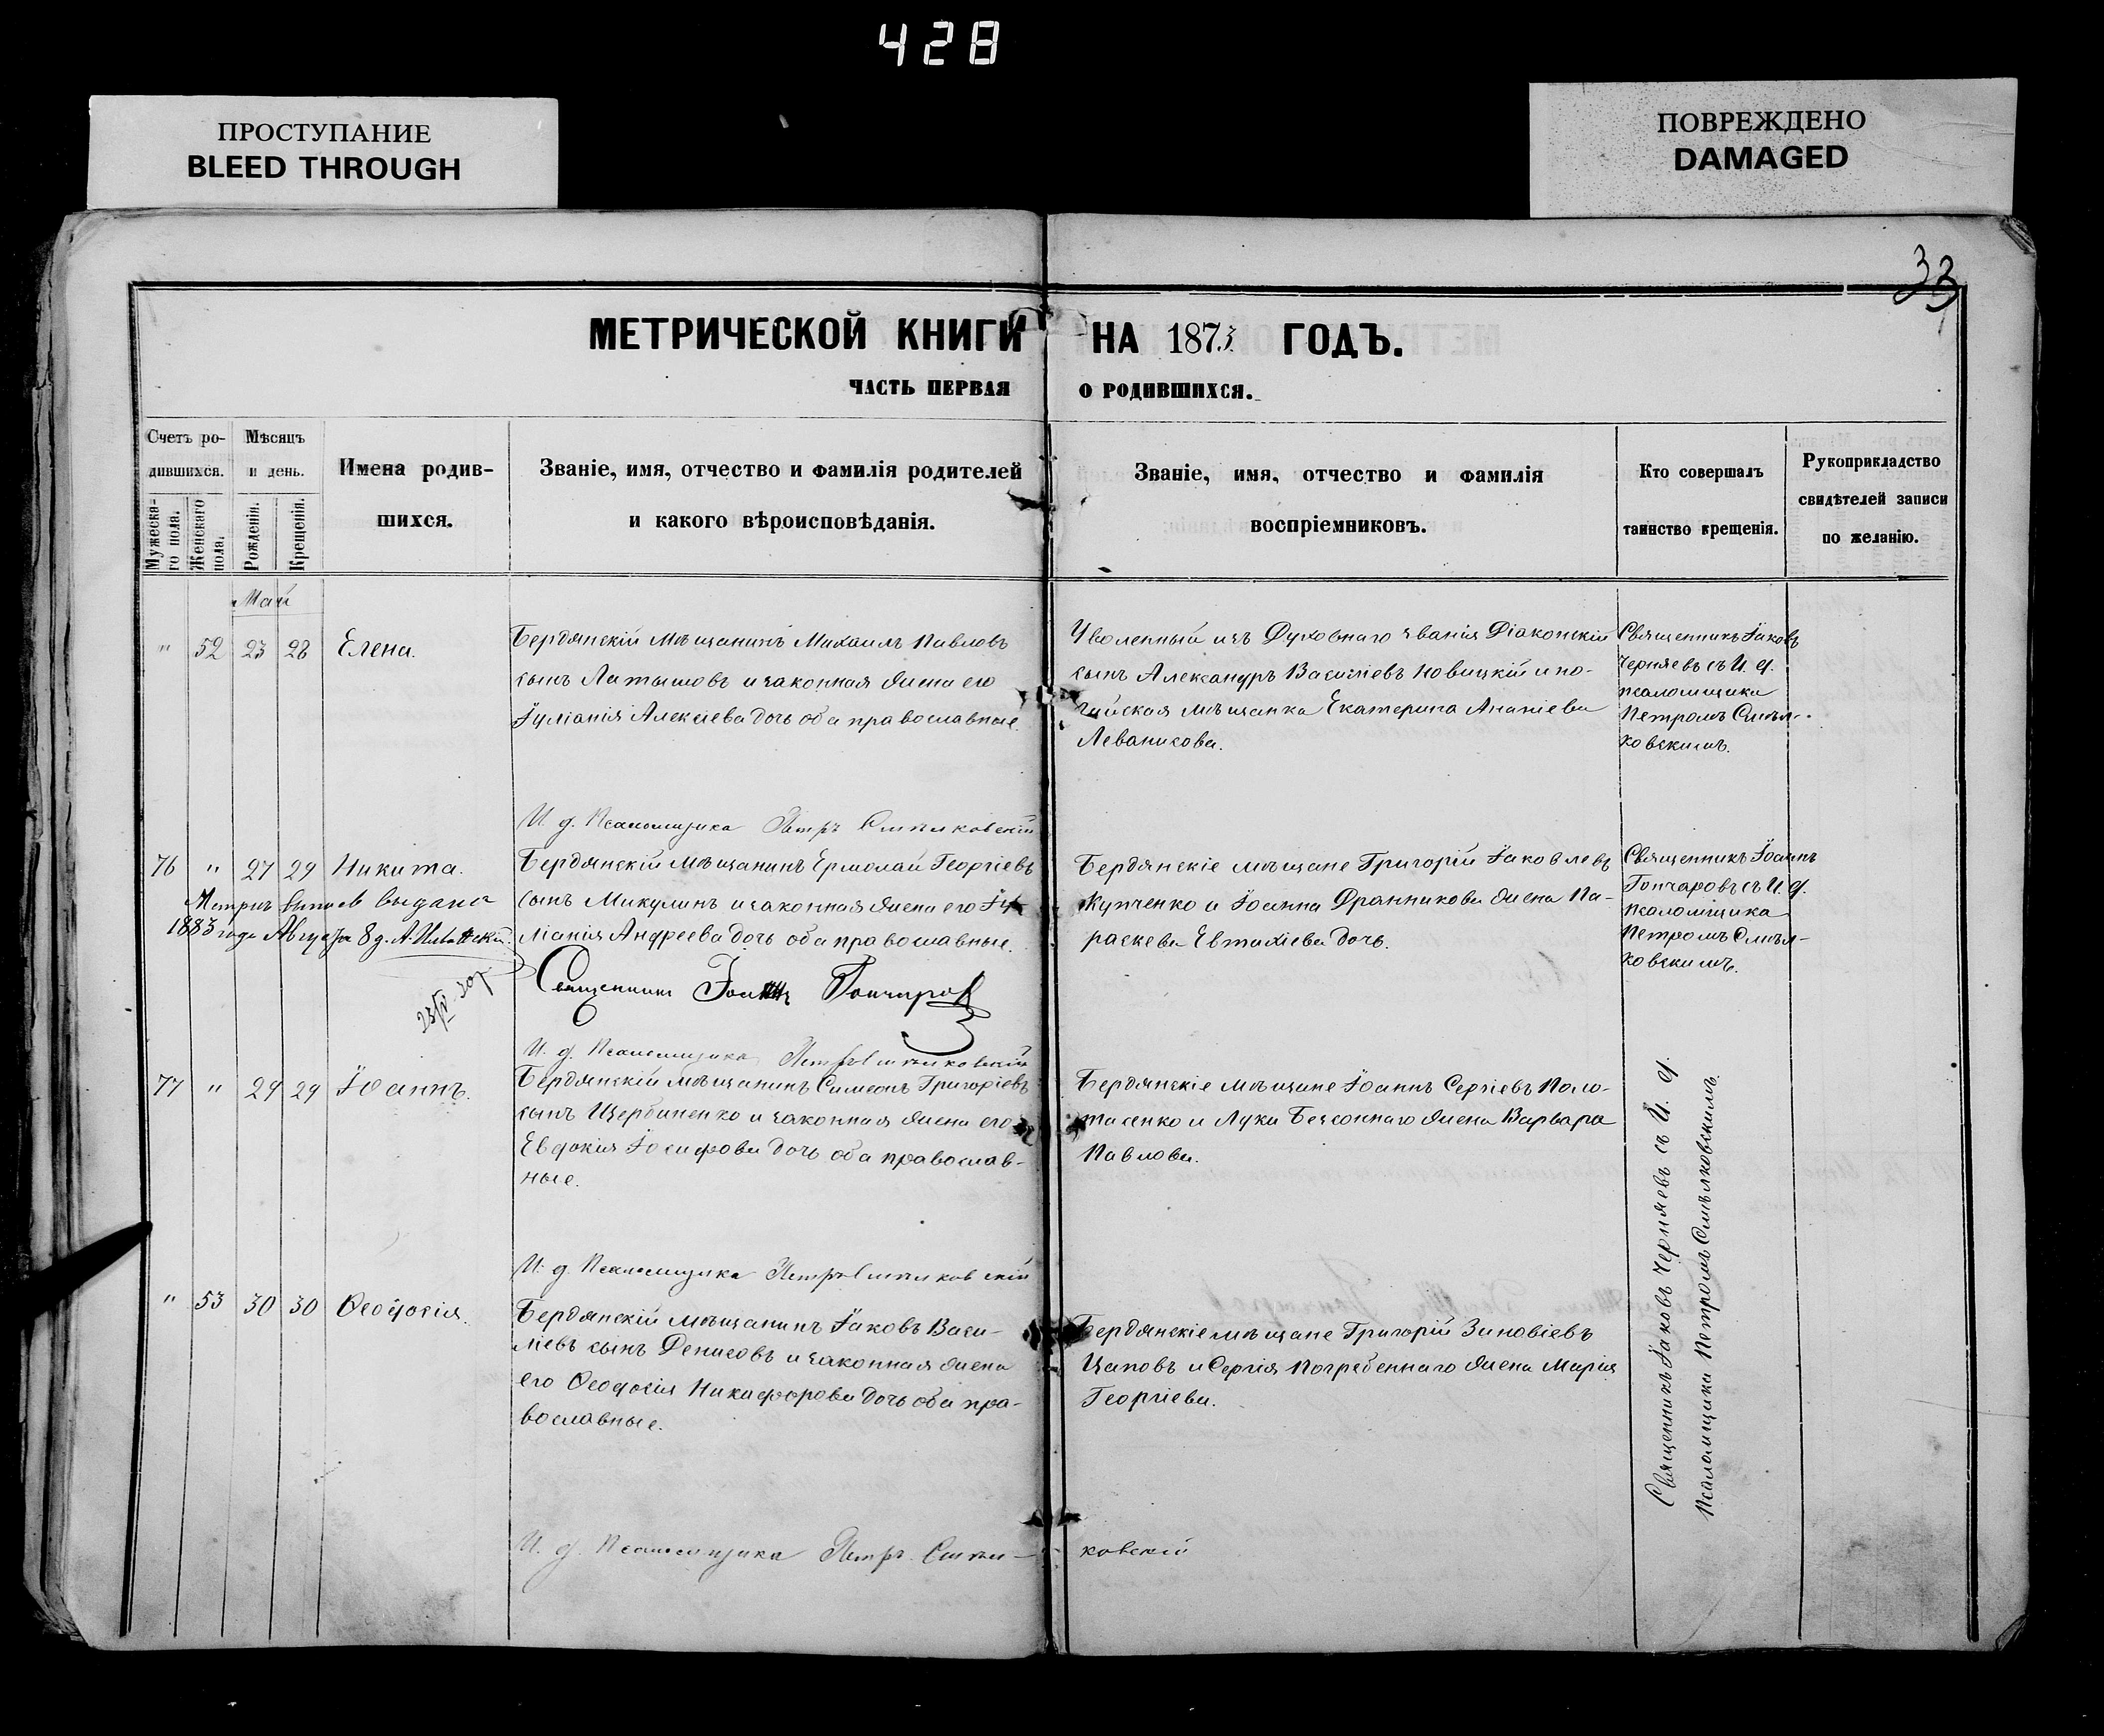 428
ПРОСТУПАНИЕ
BLEED THROUGH
ПОВРЕЖДЕНО
DAMAGED
33
МЕТРИЧЕСКОЙ КНИГИ НА 1873 ГОДЪ.
ЧАСТЬ ПЕРВАЯ О РОДИВШИХСЯ.
Счетъ ро-
дившихся.
Мужеска-
го пола.
Женскаго
пола.
Мѣсяцъ
и день.
Рожденія.
Крещенія.
Имена родив-
шихся.
Званіе, имя, отчество и фамилія родителей
и какого вѣроисповѣданія.
Званіе, имя, отчество и фамилія
воспріемниковъ.
Кто совершалъ
таинство крещенія.
Рукоприкладство
свидѣтелей записи
по желанію.
Май
" 52 23 28 Елена.
Бердянскій мѣщанинъ Михаилъ Павловъ
сынъ Латышовъ и законная жена его
Іуліанія Алексіева дочь оба православные.
Уволенный изъ Духовнаго званія Діаконскій
сынъ Александръ Василіевъ Новицкій и но-
гайская мѣщанка Екатерина Ананіева
Леваникова.
Священникъ Іаковъ
Черняевъ съ И. д.
псаломщика
Петромъ Смѣл-
ковскимъ.
И. д. Псаломщика Петръ Смѣлковскій
76 " 27 29 Никита.
Бердянскій мѣщанинъ Ермолай Георгіевъ
сынъ Микулинъ и законная жена его Іу-
ліанія Андреева дочь оба православные.
Бердянскіе мѣщане Григорій Іаковлевъ
Купченко и Іоанна Дранникова жена Па-
раскева Евтихіева дочь.
Священникъ Іоаннъ
Гончаровъ съ И. д.
псаломщика
Петромъ Смѣл-
ковскимъ.
Метрич выпись выдана
1883 года Августа 8 д.
Священникъ Іоаннъ Гончаровъ
И. д. Псаломщика Петръ Смѣлковскій
77 " 24 29 Іоаннъ.
Бердянскій мѣщанинъ Симеонъ Григоріевъ
сынъ Щербиненко и законная жена его
Евдокія Іосифова дочь оба православ-
ные.
Бердянскіе мѣщане Іоаннъ Сергіевъ Поло-
тасенко и Луки Безсоннаго жена Варвара
Павлова.
И. д. Псаломщика Петръ Смѣлковскій
" 53 30 30 Ѳеодосія.
Бердянскій мѣщанинъ Іаковъ Васи-
ліевъ сынъ Денисовъ и законная жена
его Ѳеодосія Никифорова дочь оба пра-
вославные.
Бердянскіе мѣщане Григорій Зиновіевъ
Цаповъ и Сергія Погребеннаго жена Марія
Георгіева.
Священникъ Іаковъ Черняевъ съ И. д.
Псаломщика Петромъ Смѣлковскимъ.
И. д. Псаломщика Петръ Смѣл-
ковскій